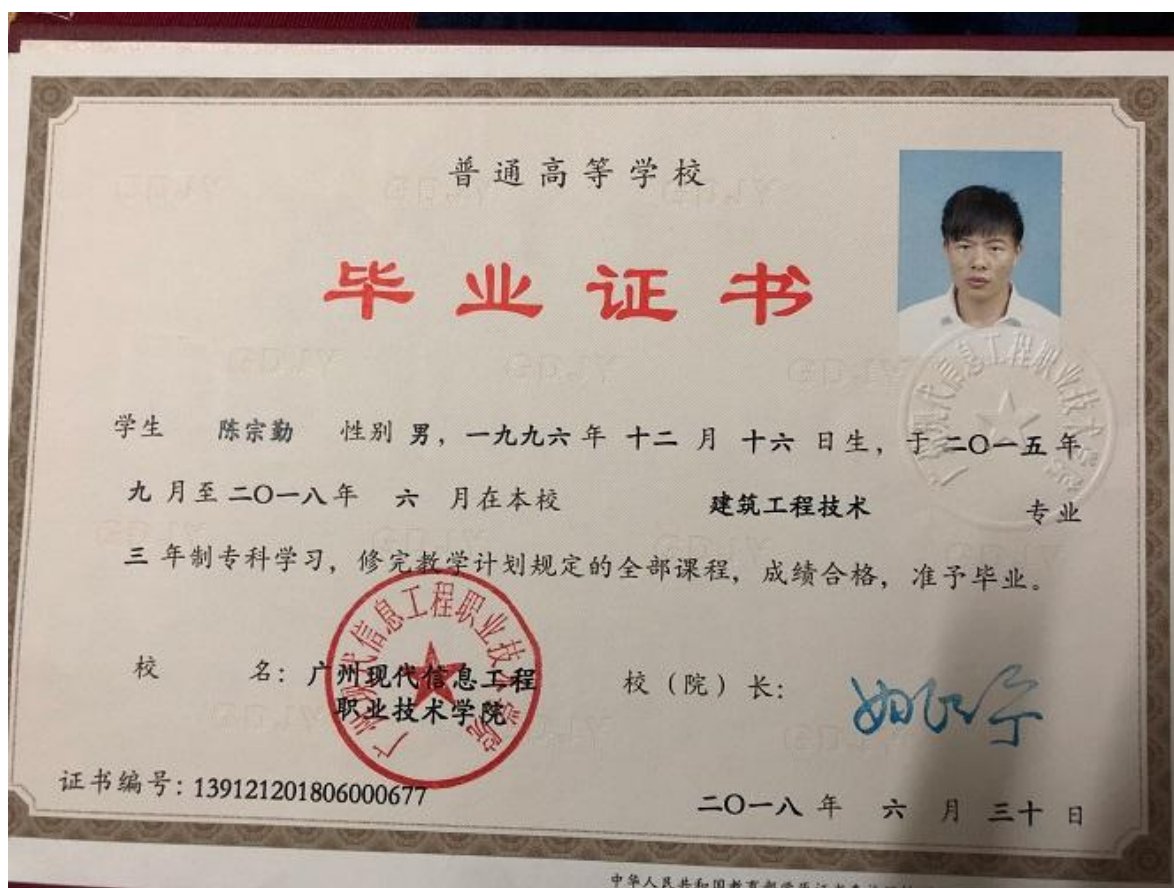 普通高等学校
毕业证书
学生 陈宗勤 性别 男，一九九六 年 十二 月 十六 日生，于 二〇一五 年
九 月至 二〇一八 年 六 月在本校 建筑工程技术 专业
三 年制专科学习，修完教学计划规定的全部课程，成绩合格，准予毕业。
校 名：广州现代信息工程
职业技术学院
校（院）长：
证书编号：139121201806000677
二〇一八 年 六 月 三十 日
广州现代信息工程职业技术学院
中华人民共和国教育部学历证书